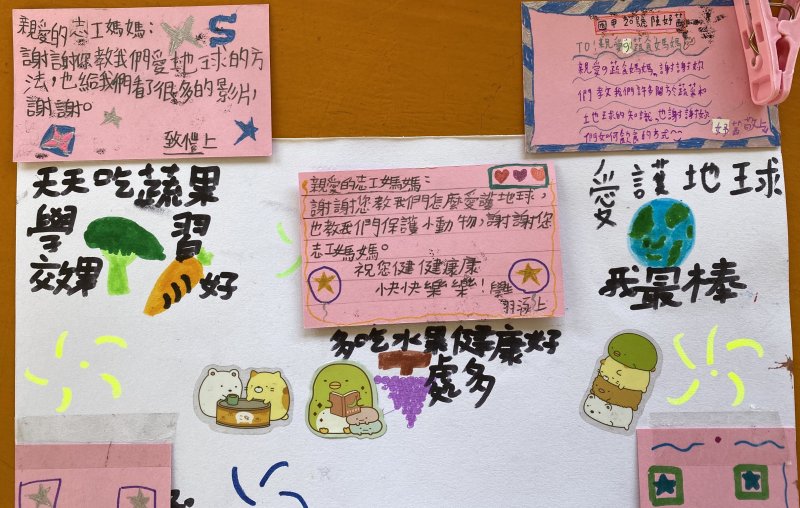 親愛的志工媽媽：
謝謝你教我們愛地球的方
法，也給我們看了很多的影片，
謝謝。
致愷上
四甲20號陸妤菡
TO!親愛的蔬食媽媽
親愛的蔬食媽媽，謝謝妳
們教我們許多關於蔬菜和
土地球的知識，也謝謝妳
們如何飲食的方式～
敬上
親愛的志工媽媽：
謝謝您教我們怎麼愛護地球，
也教我們保護小動物，謝謝您
志工媽媽。
祝您健健康康
快快樂樂！
上
天天吃蔬果
學習
效果好
愛護地球
我最棒
多吃水果健康好
處多